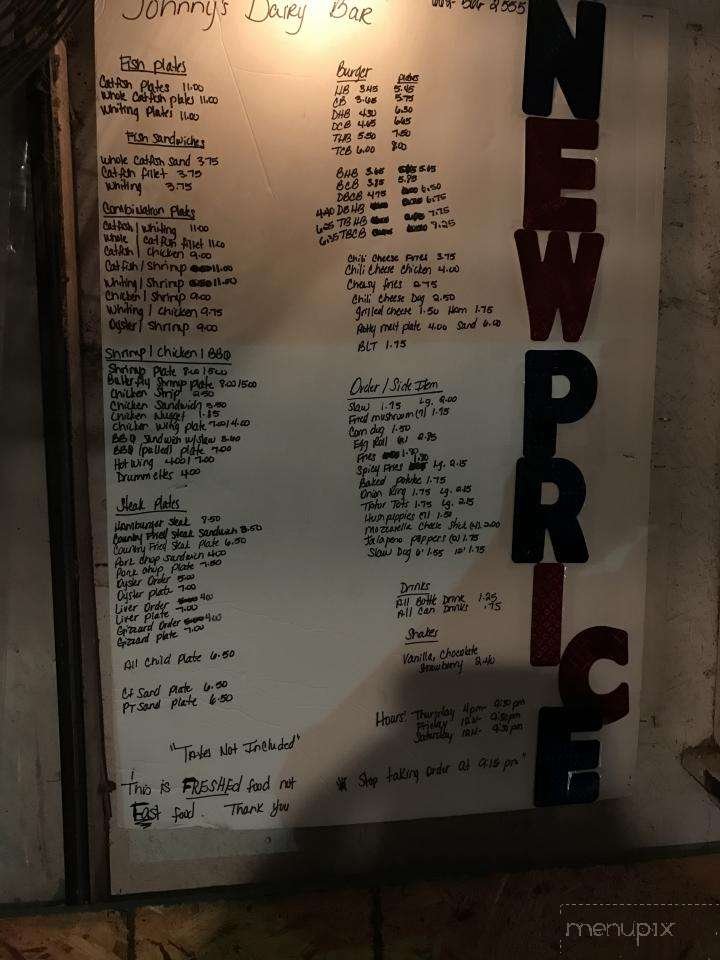 Johnny's Dairy Bar
Fish plates
Catfish Plates 11.00
Whole Catfish plates 11.00
Whiting Plates 11.00
Fish Sandwiches
Whole Catfish Sand 3.75
Catfish fillet 3.75
Whiting 3.75
Combination Plates
Catfish / Whiting 11.00
Whole / catfish fillet 11.00
Catfish / Chicken 9.00
Catfish / Shrimp 11.00
Whiting / Shrimp 11.00
Chicken / Shrimp 9.00
Whiting / Chicken 9.75
Oyster / Shrimp 9.00
Shrimp / Chicken / BBQ
Shrimp Plate 8.00 / 5.00
Butterfly Shrimp Plate 8.00 / 5.00
Chicken Strip 2.50
Chicken Sandwich 3.50
Chicken Nugget 1.85
Chicken Wing plate 7.00 / 4.00
BBQ Sandwich w/slaw 3.60
BBQ (pulled) plate 7.00
Hot Wing 4.00 / 7.00
Drummettes 4.00
Steak Plates
Hamburger Steak 7.50
Country Fried Steak Sandwich 3.50
Country Fried Steak Plate 6.50
Pork Chop Sandwich 4.00
Pork Chop Plate 7.50
Oyster Order 5.00
Oyster plate 7.00
Liver Order 4.00
Liver plate 7.00
Gizzard Order 4.00
Gizzard plate 7.00
All Child Plate 6.50
CF Sand Plate 6.50
PT Sand Plate 6.50
"Taxes Not Included"
This is FRESHed food not
East food. Thank you
Burger plates
HB 3.45 5.45
CB 3.65 5.75
DHB 4.30 6.30
DCB 4.65 6.65
THB 5.50 7.50
TCB 6.00 8.00
BHB 3.65 5.65
BCB 3.85 5.85
DBCB 4.75 6.50
4.40 DBHB 6.75
6.25 TBHB 7.75
6.35 TBCB 7.25
Chili Cheese Fries 3.75
Chili Cheese Chicken 4.00
Cheesy fries 2.75
Chili Cheese Dog 2.50
Grilled cheese 1.50 Ham 1.75
Patty melt plate 4.00 Sand 6.00
BLT 1.75
Order / Side Item
Slaw 1.75 Lg. 2.00
Fried mushroom (7) 1.75
Corn dog 1.50
Egg Roll 2.25
Fries 1.30
Spicy Fries 1.30 Lg. 2.15
Baked potato 1.75
Onion Ring 1.75 Lg. 2.15
Tator Tots 1.75 Lg. 2.15
Hushpuppies 1.50
Mozzarella Cheese Stick 2.00
Jalapeno peppers 1.75
Slaw Dog 6" 1.55 12" 1.75
Drinks
All Bottle Drink 1.25
All Can Drinks .75
Shakes
Vanilla, Chocolate
Strawberry 2.40
Hours: Thursday 4pm - 9:30pm
Friday 12N - 9:30pm
Saturday 12N - 9:30pm
* Stop taking order at 9:15 pm"
NEW PRICE
menupix